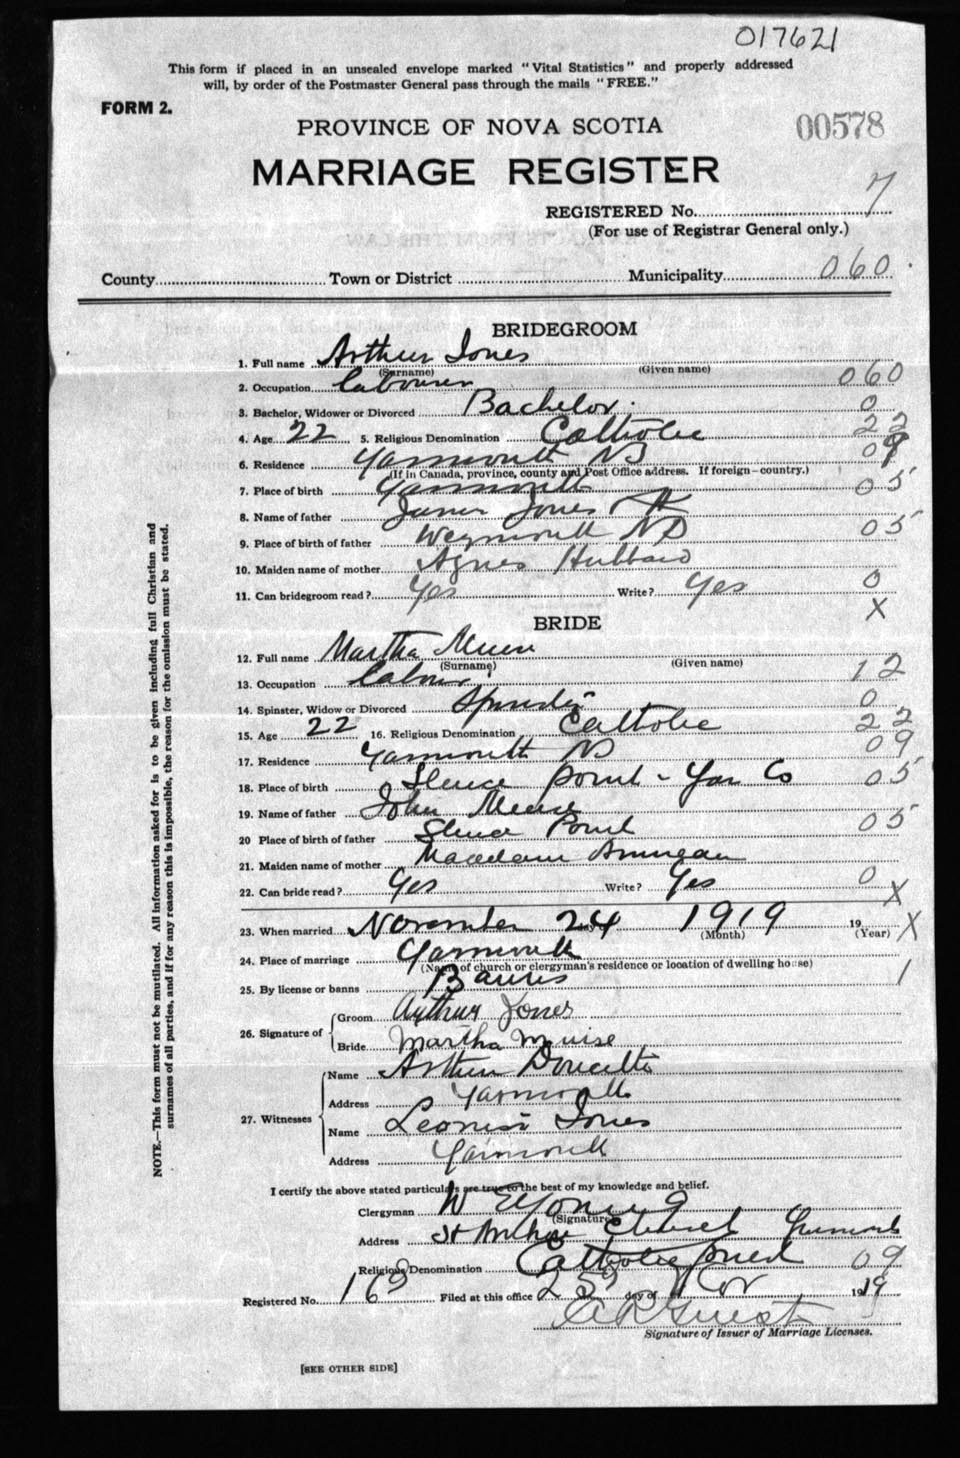 017621
This form if placed in an unsealed envelope marked "Vital Statistics" and properly addressed
will, by order of the Postmaster General pass through the mails "FREE."
FORM 2.
00578
PROVINCE OF NOVA SCOTIA
MARRIAGE REGISTER
REGISTERED No. 7
(For use of Registrar General only.)
County Town or District Municipality 060
BRIDEGROOM
1. Full name Arthur Jones
(Surname) (Given name)
2. Occupation Labourer 060
3. Bachelor, Widower or Divorced Bachelor. 0
4. Age 22 5. Religious Denomination Catholic 22
6. Residence Yarmouth NS 09
(If in Canada, province, county and Post Office address. If foreign—country.)
7. Place of birth Yarmouth 05
8. Name of father James Jones
9. Place of birth of father Weymouth NS 05
10. Maiden name of mother Agnes Hubbard
11. Can bridegroom read? Yes Write? Yes 0
X
BRIDE
12. Full name Martha
(Surname) (Given name)
13. Occupation 12
14. Spinster, Widow or Divorced Spinster 0
15. Age 22 16. Religious Denomination Catholic 22
17. Residence Yarmouth NS 09
18. Place of birth Point - Yar Co 05
19. Name of father John
20 Place of birth of father Point 05
21. Maiden name of mother
22. Can bride read? Yes Write? Yes 0
X
23. When married November 24 1919 19 X
(Month) (Year)
24. Place of marriage Yarmouth
(Name of church or clergyman's residence or location of dwelling house)
25. By license or banns Banns 1
26. Signature of
Groom Arthur Jones
Bride Martha Muise
27. Witnesses
Name Arthur Doucette
Address Yarmouth
Name Jones
Address Yarmouth
I certify the above stated particulars are true to the best of my knowledge and belief.
Clergyman W E Young
(Signature)
Address St Church
Religious Denomination Catholic priest 09
Registered No. 163 Filed at this office 25 day of Nov 1919
Signature of Issuer of Marriage Licenses.
[SEE OTHER SIDE]
NOTE.—This form must not be mutilated. All information asked for is to be given including full Christian and
surnames of all parties, and if for any reason this is impossible, the reason for the omission must be stated.